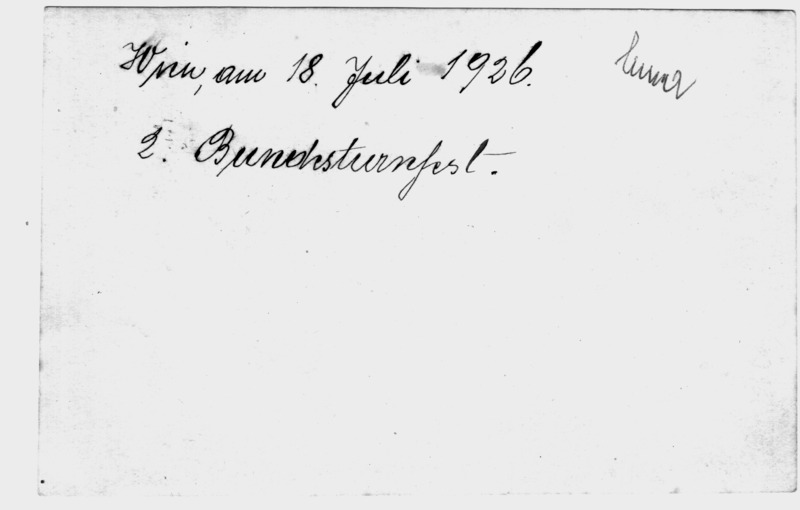 Wien, am 18. Juli 1926.
2. Bundesturnfest.